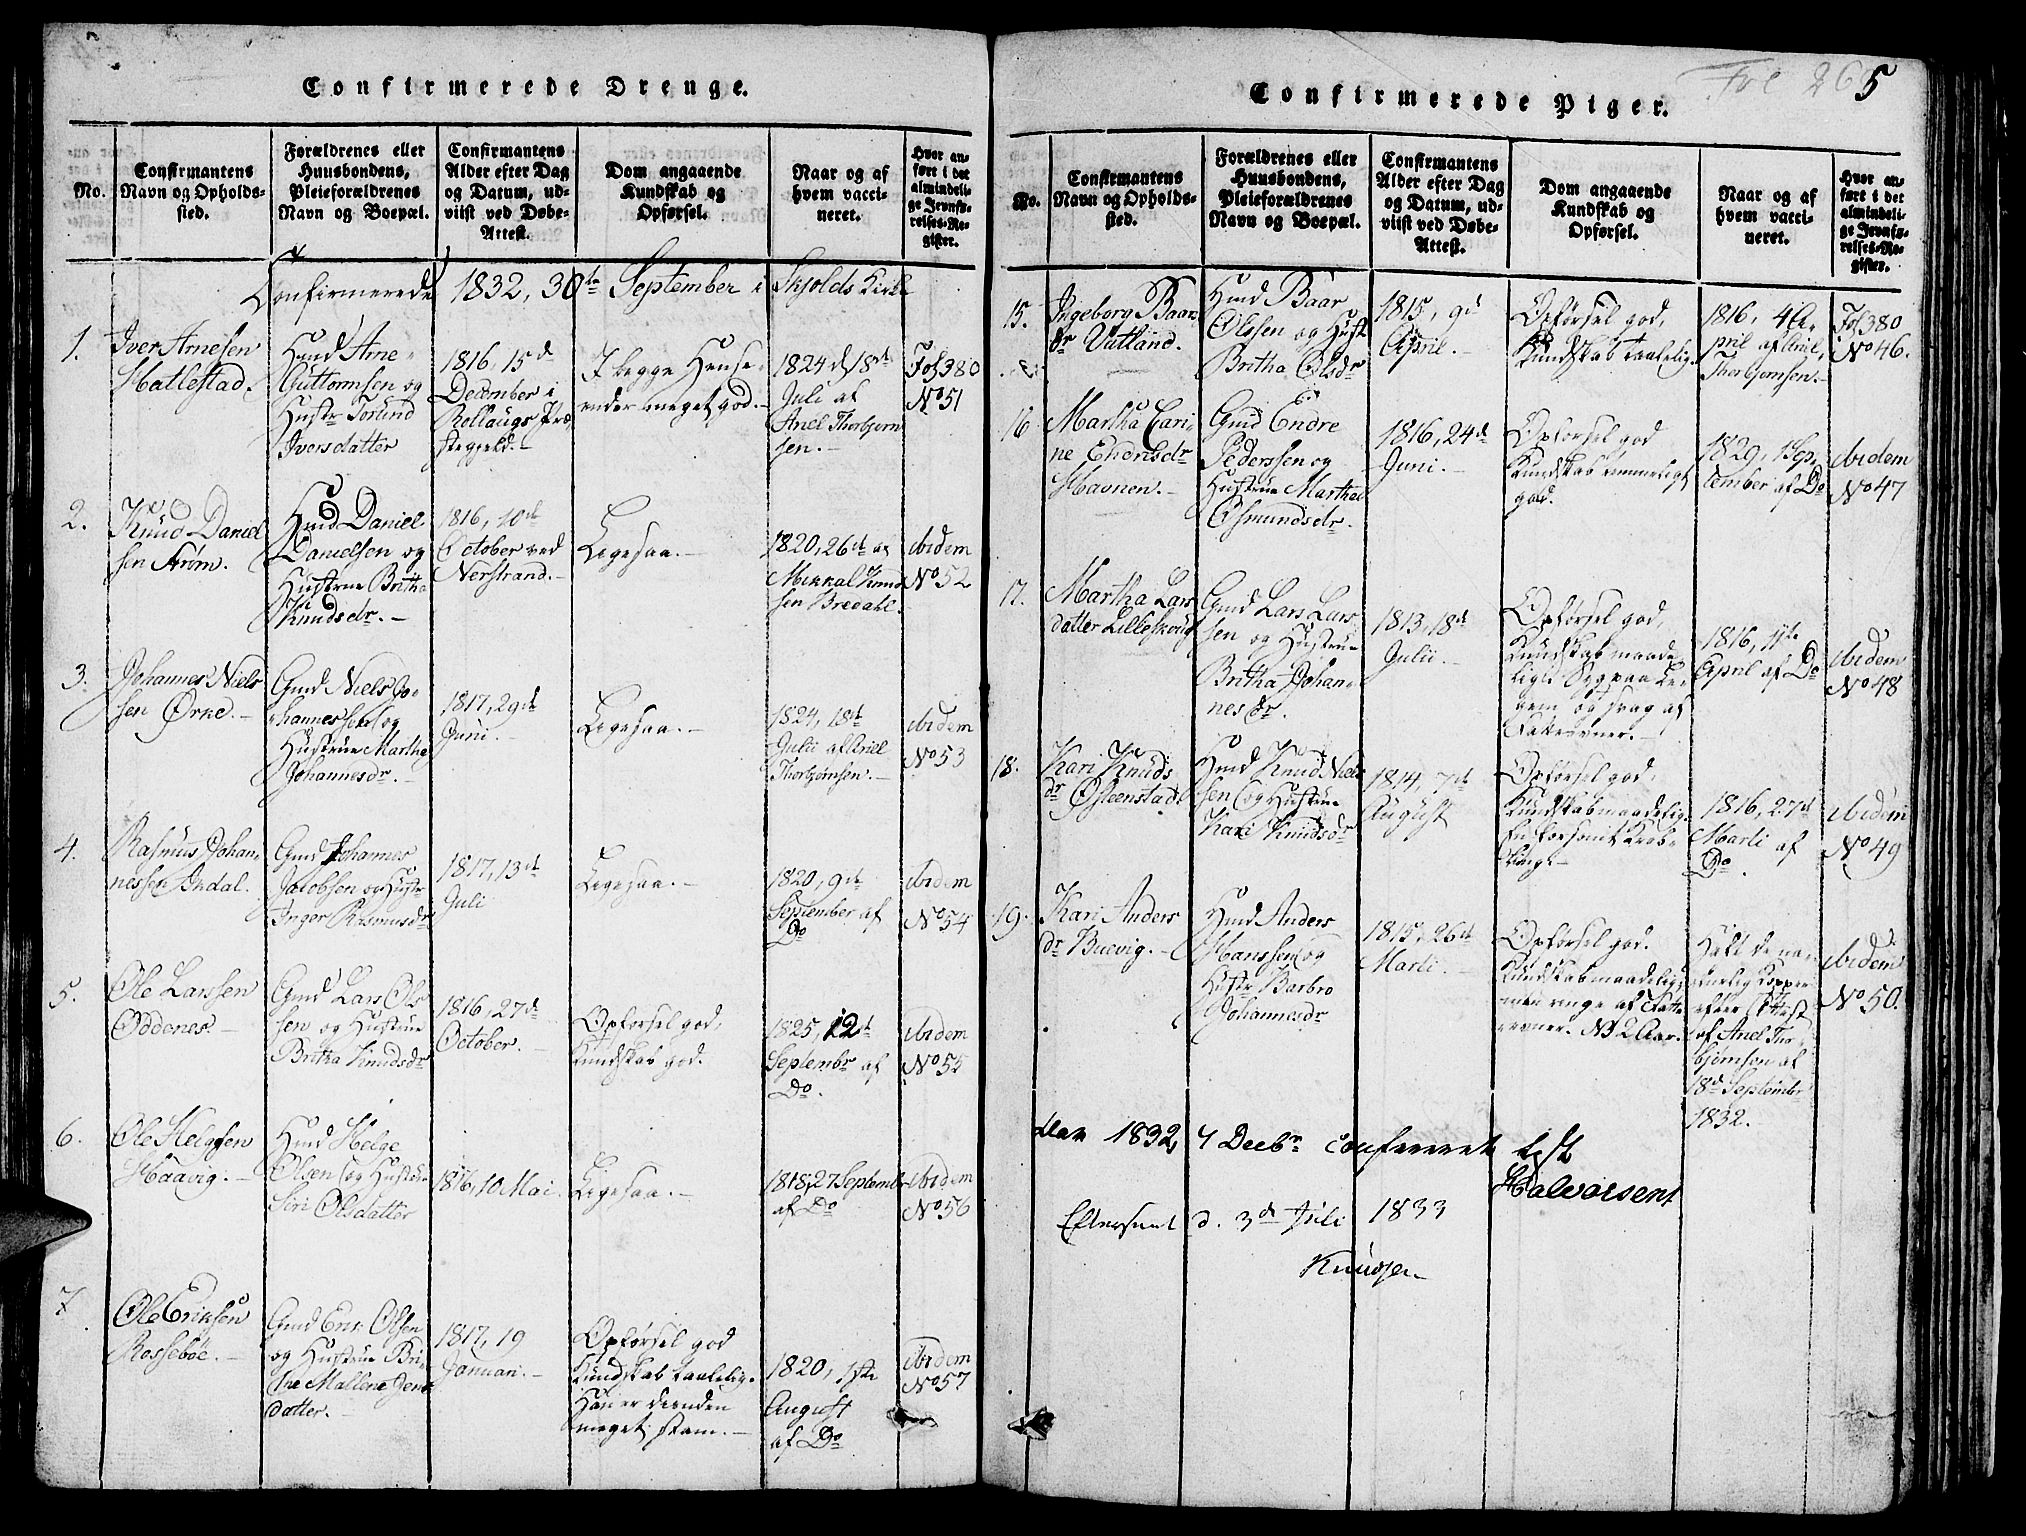 Confirmerede Drenge.
No.
Confirmantens
Navn og Opholds-
sted.
Forældrenes eller
Huusbondens,
Pleieforældrenes
Navn og Boepæl.
Confirmantens
Alder efter Dag
og Datum, ud-
viist ved Døbe-
Attest.
Dom angaaende
Kundskab og
Opførsel.
Naar og af
hvem vacci-
neret.
Hvor an-
ført i det
almindeli-
ge Jevnfø-
relses-Re-
gister.
Confirmerede 1832, 30te September i Skjolds Kirke
1.
Iver Arnesen
Hatlestad.
Hmd Arne
Guttormsen og
Hustr Torund
Iversdatter
1816, 15d
December i
Præ-
stegjeld.-
I begge Hense-
ender meget god.-
1824 d 18de
Juli af
Ariel Thorbjørn
sen.-
Fol 380
No 51
2.
Knud Daniel
sen Strøm.
Hmd Daniel
Danielsen og
Hustrue Britha
Knudsdr.-
1816, 10de
October ved
Nerstrand.-
Ligesaa.-
1820, 26de
Mikkal Knud
sen Bredahl.
ibidem
No 52
3.
Johannes Niels
sen Ørke.-
Gmd Niels Jo-
hannessen og
Hustrue Martha
Johannesdr.-
1817, 29de
Juni.-
Ligesaa.-
1824, 18de
Julii af Ariel
Thorbjørnsen.-
ibidem
No 53
4.
Rasmus Johan-
nessen Indal.
Gmd Johannes
Jacobsen og Hustr
Inger Rasmusdr
1817, 13de
Juli
Ligesaa.-
1820, 9de
September af
Do
ibidem
No 54
5.
Ole Larssen
Oddenes.-
Gmd Lars Ols
sen og Hustrue
Britha Knudsdr
1816, 27de
October.-
Opførsel god,
Kundskab god.
1825, 12te
Septembr af
Do.
ibidem
No 55
6.
Ole Helgesen
Haavig.-
Hmd Helge
Olsen og Hustrue
Siri Olsdatter
1816, 10 Mai.
Ligesaa.-
1818, 27 Septembr
af Do
ibidem
No 56
7
Ole Eriksen
Rossebøe.-
Gmd Erik Olsen
og Hustrue Bri-
the Mallene Jens
datter.-
1817, 19
Januari.-
Opførsel god
Kundskab taalelig.
Han er desuden
meget stam.-
1820, 1ste
August
af Do
ibidem
No 57
Confirmerede Piger.
Fol 265
No.
Confirmantens
Navn og Opholds-
sted.
Forældrenes eller
Huusbondens,
Pleieforældrenes
Navn og Boepæl.
Confirmantens
Alder efter Dag
og Datum, ud-
viist ved Døbe-
Attest.
Dom angaaende
Kundskab og
Opførsel.
Naar og af
hvem vacci-
neret.
Hvor an-
ført i det
almindeli-
ge Jevnfø-
relses-Re-
gister.
15.
Ingeborg Baars
dr Vatland.
Hmd Baar
Olssen og Hustr
Britha Olsdr
1815, 9d
April.-
Opførsel god,
Kundskab taalelig.
1816, 4 A-
pril af Ariel
Thorbjørnsen.-
Fol 380
No 46.
16
Martha Cari-
ne Endresdr
Havnen.-
Gmd Endre
Pederssen og
Hustrue Martha
Osmundsdr.
1816, 24de
Juni.-
Opførsel god
Kundskab temmeligt
god.
1829, 1 Sep-
tember af Do
ibidem
No 47
17.
Martha Lars
datter Lilleskoug
Gmd Lars Lars
sen og Hustrue
Britha Johan-
nesdr.
1813, 18de
Julii.-
Opførsel god,
Kundskab maade-
ligt. Syg paa Le-
gem og svag af
Fatteevner.-
1816, 11te
April af Do
ibidem
No 48
18.
Kari Knuds
dr Østeenstad.
Hmd Knud Niels
sen og Hustrue
Kari Knudsdr
1814, 7de
August
Opførsel god,
Kundskab maadelig.
En forsømt Krob-
ling.-
1816, 27de
Marti af
Do.
ibidem
No 49
19.
Kari Anders
dr Buevig.-
Hmd Anders
Hanssen og
Hustr Barbro
Johannesdr
1815, 26de
Marti.-
Opførsel god.
Kundskab maadelig;
men ringe af Fatte
evner. NB 2 Aar.
Havt de na-
turlige Kopper
efter Attest
af Ariel Thor
bjørnsen af
18d September
1832.
ibidem
No 50.
1832, 4 Decbr confereret
Halvorsen
Efterseet d. 3d Juli 1833
Knudsen